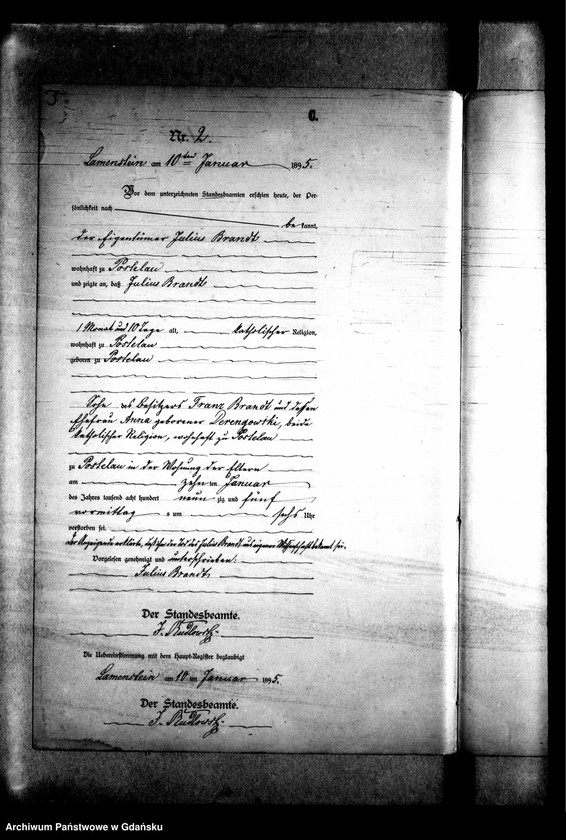 C.
Nr. 2.
Lamenstein am 10ten Januar 1895.
Vor dem unterzeichneten Standesbeamten erschien heute, der Per-
sönlichkeit nach
be kannt,
der Eigentümer Julius Brandt
wohnhaft zu Postelau
und zeigte an, daß Julius Brandt
1 Monat und 10 Tage alt, katholischer Religion,
wohnhaft zu Postelau
geboren zu Postelau
Sohn des Besitzers Franz Brandt und dessen
Ehefrau Anna geborener Derengowski, beide
katholischer Religion, wohnhaft zu Postelau
zu Postelau in der Wohnung der Eltern
am zehn ten Januar
des Jahres tausend acht hundert neun zig und fünf
vormittag s um sechs Uhr
verstorben sei.
Der Anzeigende erklärte, daß er von dem Tod des Julius Brandt aus eigener Wissenschaft bekannt sei.
Vorgelesen genehmigt und unterschrieben.
Julius Brandt
Der Standesbeamte.
Die Uebereinstimmung mit dem Haupt-Register beglaubigt
Lamenstein am 10 ten Januar 1895.
Der Standesbeamte.
Archiwum Państwowe w Gdańsku